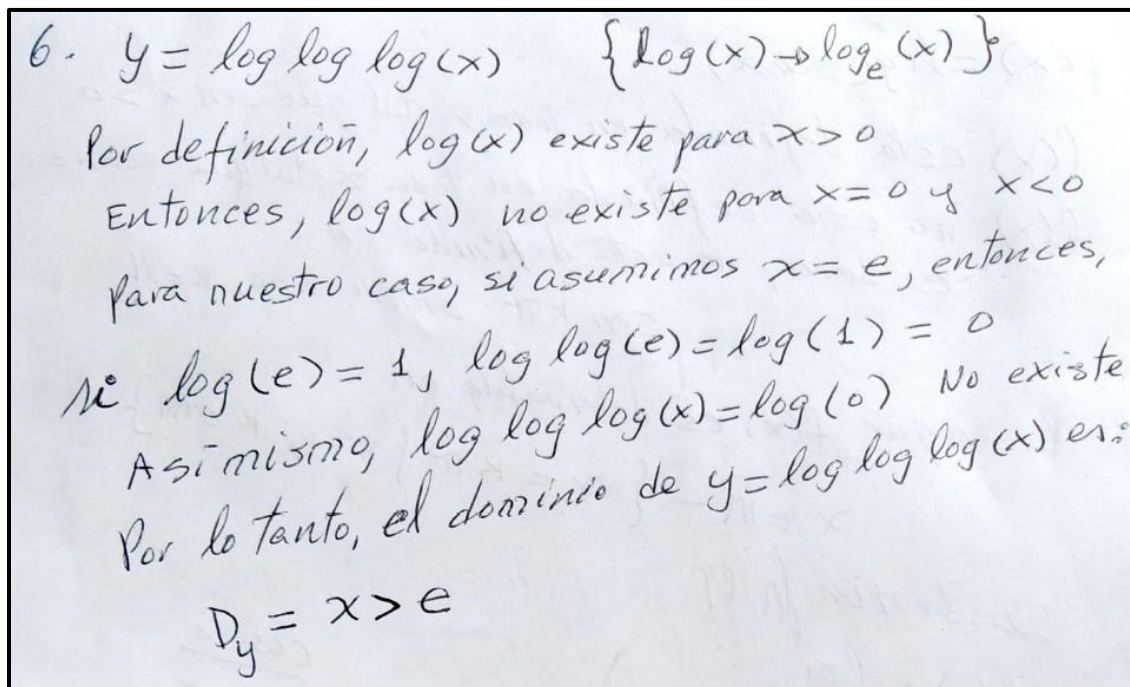 6. y = log log log(x) {log(x)→log_e(x)}
Por definición, log(x) existe para x>0
Entonces, log(x) no existe para x=0 y x<0
para nuestro caso, si asumimos x=e, entonces,
si log(e)=1, log log(e)=log(1)=0
Asimismo, log log log(x)=log(0) No existe
Por lo tanto, el dominio de y=log log log(x) es:
D_y = x>e